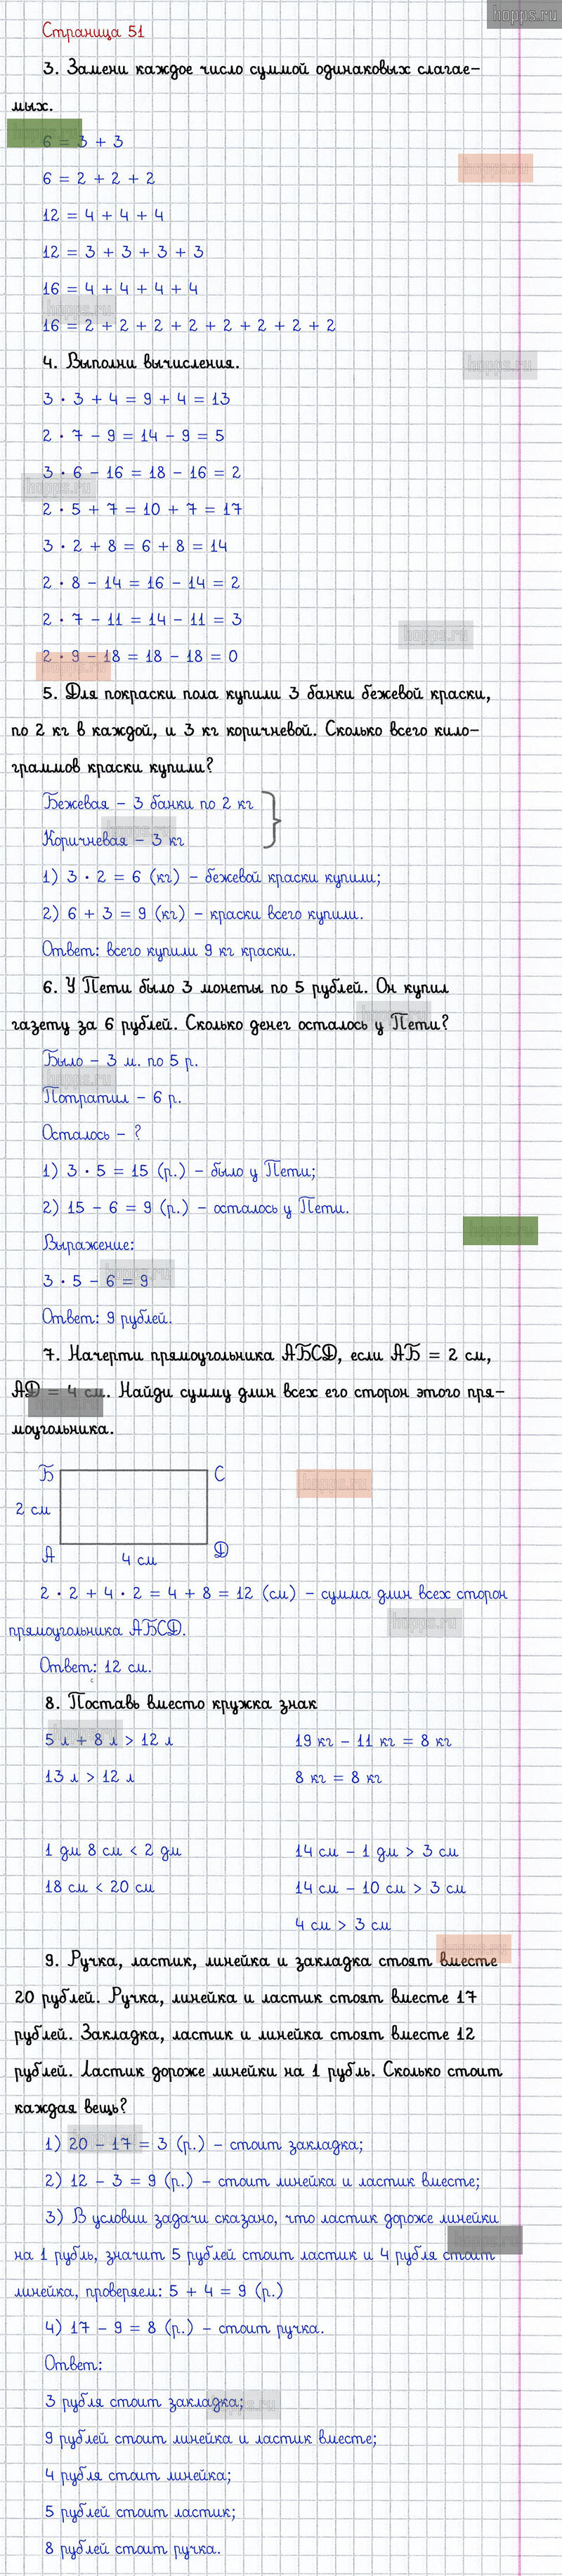 hopps.ru
Страница 51
3. Замени каждое число суммой одинаковых слагае-
мых.
6 = 3 + 3
hopps.ru
6 = 2 + 2 + 2
12 = 4 + 4 + 4
12 = 3 + 3 + 3 + 3
16 = 4 + 4 + 4 + 4
hopps.ru
16 = 2 + 2 + 2 + 2 + 2 + 2 + 2 + 2
4. Выполни вычисления.
hopps.ru
3 · 3 + 4 = 9 + 4 = 13
2 · 7 - 9 = 14 - 9 = 5
3 · 6 - 16 = 18 - 16 = 2
hopps.ru
2 · 5 + 7 = 10 + 7 = 17
3 · 2 + 8 = 6 + 8 = 14
2 · 8 - 14 = 16 - 14 = 2
2 · 7 - 11 = 14 - 11 = 3
hopps.ru
2 · 9 - 18 = 18 - 18 = 0
5. Для покраски пола купили 3 банки бежевой краски,
по 2 кг в каждой, и 3 кг коричневой. Сколько всего кило-
граммов краски купили?
Бежевая - 3 банки по 2 кг
Коричневая - 3 кг
1) 3 · 2 = 6 (кг) - бежевой краски купили;
2) 6 + 3 = 9 (кг) - краски всего купили.
Ответ: всего купили 9 кг краски.
6. У Пети было 3 монеты по 5 рублей. Он купил
газету за 6 рублей. Сколько денег осталось у Пети?
Было - 3 м. по 5 р.
hopps.ru
Потратил - 6 р.
Осталось - ?
1) 3 · 5 = 15 (р.) - было у Пети;
2) 15 - 6 = 9 (р.) - осталось у Пети.
hopps.ru
Выражение:
3 · 5 - 6 = 9
Ответ: 9 рублей.
7. Начерти прямоугольника АБСД, если АБ = 2 см,
АД = 4 см. Найди сумму длин всех его сторон этого пря-
моугольника.
Б С
hopps.ru
2 см
А 4 см Д
2 · 2 + 4 · 2 = 4 + 8 = 12 (см) - сумма длин всех сторон
hopps.ru
прямоугольника АБСД.
Ответ: 12 см.
8. Поставь вместо кружка знак
5 л + 8 л > 12 л 19 кг - 11 кг = 8 кг
13 л > 12 л 8 кг = 8 кг
1 дм 8 см < 2 дм 14 см - 1 дм > 3 см
18 см < 20 см 14 см - 10 см > 3 см
4 см > 3 см
9. Ручка, ластик, линейка и закладка стоят вместе
20 рублей. Ручка, линейка и ластик стоят вместе 17
рублей. Закладка, ластик и линейка стоят вместе 12
рублей. Ластик дороже линейки на 1 рубль. Сколько стоит
каждая вещь?
1) 20 - 17 = 3 (р.) - стоит закладка;
2) 12 - 3 = 9 (р.) - стоит линейка и ластик вместе;
3) В условии задачи сказано, что ластик дороже линейки
на 1 рубль, значит 5 рублей стоит ластик и 4 рубля стоит
линейка, проверяем: 5 + 4 = 9 (р.)
4) 17 - 9 = 8 (р.) - стоит ручка.
Ответ:
3 рубля стоит закладка;
9 рублей стоит линейка и ластик вместе;
4 рубля стоит линейка;
5 рублей стоит ластик;
8 рублей стоит ручка.